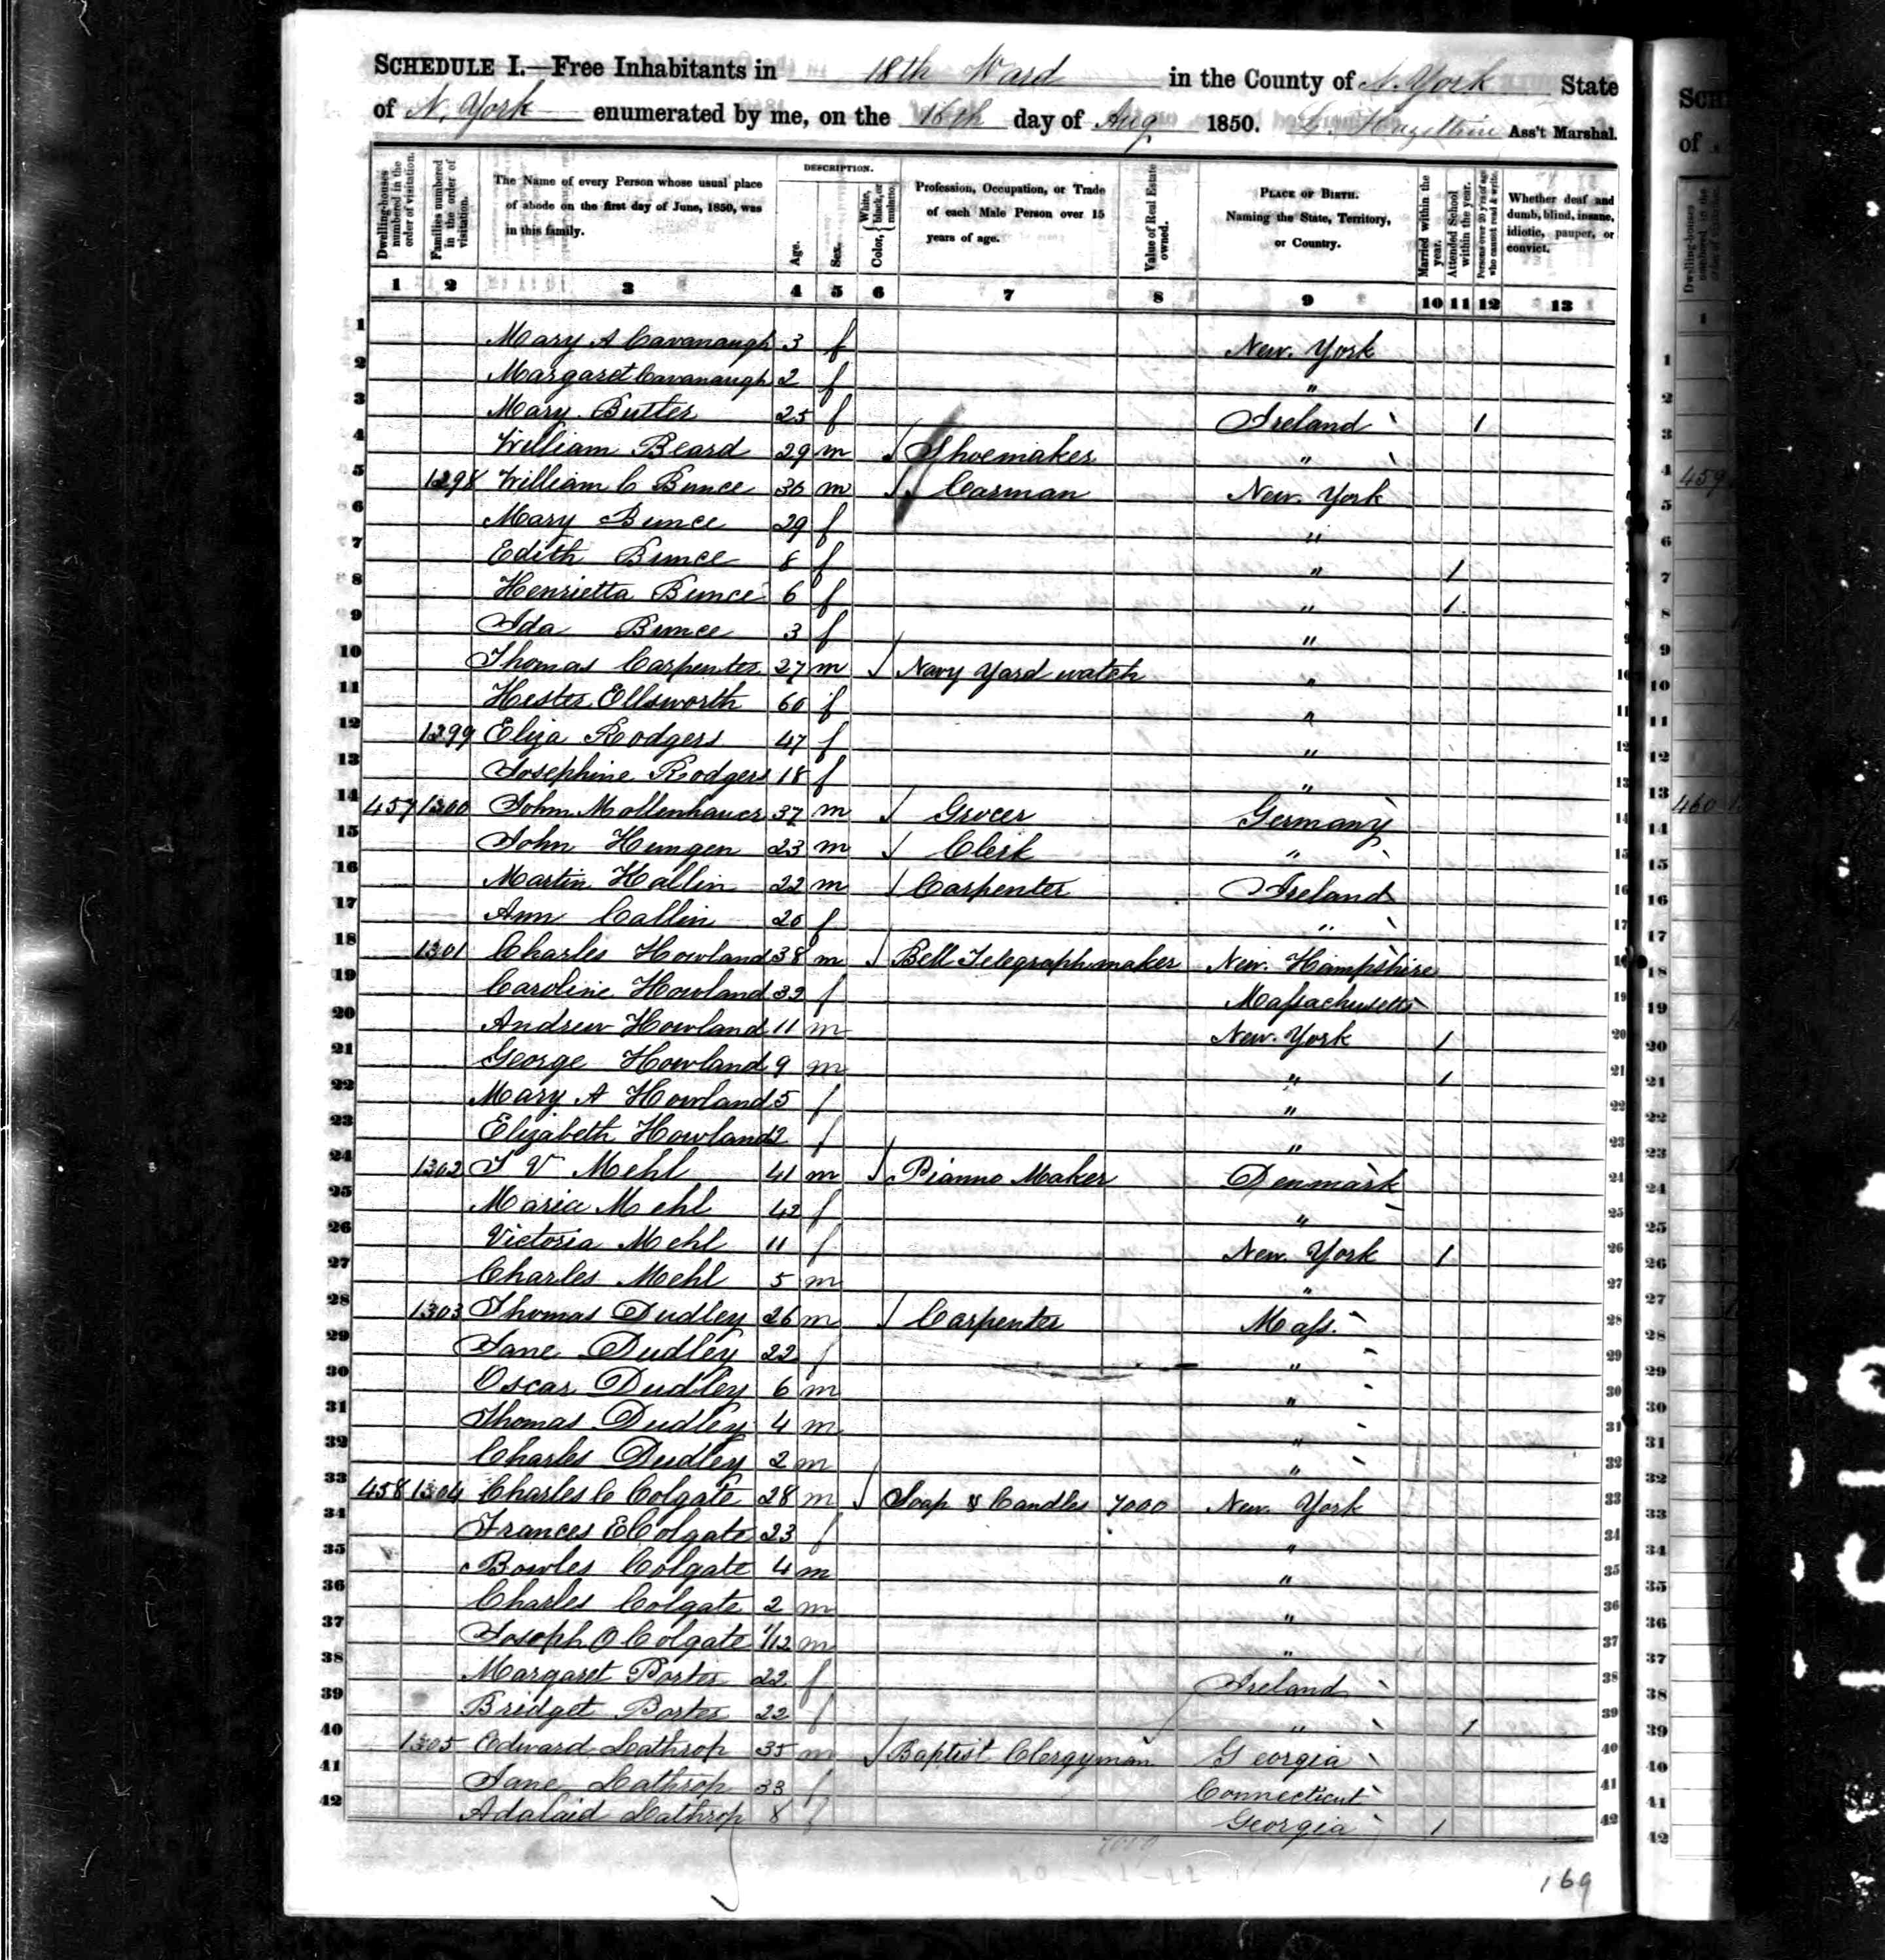 SCHEDULE I.—Free Inhabitants in 18th Ward in the County of N. York State
of N. York enumerated by me, on the 16th day of Aug 1850. Ass't Marshal.
Dwelling-houses numbered in the order of visitation.
Families numbered in the order of visitation.
The Name of every Person whose usual place of abode on the first day of June, 1850, was in this family.
DESCRIPTION.
Age.
Sex.
Color, { White, black, or mulatto.
Profession, Occupation, or Trade of each Male Person over 15 years of age.
Value of Real Estate owned.
PLACE OF BIRTH. Naming the State, Territory, or Country.
Married within the year.
Attended School within the year.
Persons over 20 y'rs of age who cannot read & write.
Whether deaf and dumb, blind, insane, idiotic, pauper, or convict.
1 2 3 4 5 6 7 8 9 10 11 12 13
1 Mary A Cavanaugh 3 f New York
2 Margaret Cavanaugh 2 f "
3 Mary Butler 25 f Ireland 1
4 William Beard 29 m Shoemaker "
5 1298 William C Bunce 36 m Carman New York
6 Mary Bunce 29 f "
7 Edith Bunce 8 f " 1
8 Henrietta Bunce 6 f " 1
9 Ida Bunce 3 f "
10 Thomas Carpenter 27 m Navy Yard watch "
11 Hester Ellsworth 60 f "
12 1299 Eliza Rodgers 47 f "
13 Josephine Rodgers 18 f "
14 457 1300 John Mollenhauer 37 m Grocer Germany
15 John Hungen 23 m Clerk "
16 Martin Kallin 22 m Carpenter Ireland
17 Ann Callin 20 f "
18 1301 Charles Howland 38 m Bell Telegraph maker New Hampshire
19 Caroline Howland 32 f Massachusetts
20 Andrew Howland 11 m New York 1
21 George Howland 9 m " 1
22 Mary A Howland 5 f "
23 Elizabeth Howland 2 f "
24 1302 J V Mehl 41 m Pianno Maker Denmark
25 Maria Mehl 42 f "
26 Victoria Mehl 11 f New York 1
27 Charles Mehl 5 m "
28 1303 Thomas Dudley 26 m Carpenter Mass.
29 Jane Dudley 22 f "
30 Oscar Dudley 6 m "
31 Thomas Dudley 4 m "
32 Charles Dudley 2 m "
33 458 1304 Charles C Colgate 28 m Soap & Candles 7000 New York
34 Frances E Colgate 23 f "
35 Bowles Colgate 4 m "
36 Charles Colgate 2 m "
37 Joseph O Colgate 1/12 m "
38 Margaret Porter 22 f Ireland
39 Bridget Porter 22 f " 1
40 1305 Edward Lathrop 35 m Baptist Clergyman Georgia
41 Jane Lathrop 33 f Connecticut
42 Adalaid Lathrop 8 f Georgia 1
7000
169
459
460